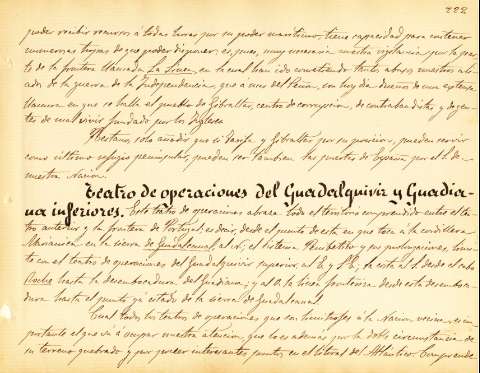 222
poder recibir recursos á todas horas por su poder marítimo, tiene capacidad para contener
numerosas tropas de que poder disponer; es, pues, muy necesaria nuestra vigilancia por la par-
te de la frontera llamada La Línea, en la cual han ido cometiendo tantos abusos nuestros alia-
dos de la guerra de la Independencia, que á mas del Peñon, son hoy dia dueños de una extensa
llanura en que se halla el pueblo de Gibraltar, centro de corrupcion, de contrabandistas, y de gen-
tes de mal vivir fundado por los ingleses
Réstanos solo añadir que si Tarifa y Gibraltar por su posicion, pueden servir
como último refugio peninsular, pueden ser tambien las puertas de por el S. de
nuestra Nacion.
Teatro de operaciones del Guadalquivir y Guadia-
na inferiores. Este teatro de operaciones abraza todo el territorio comprendido entre el tea-
tro anterior y la frontera de Portugal, es decir, desde el punto de esta en que toca á la cordillera
Mariánica en la sierra de Guadalcanal, al N; el sistema Penibético y sus prolongaciones,
en el teatro de operaciones del Guadalquivir superior, al E y S.E; la costa al S. desde el cabo
Roche hasta la desembocadura del Guadiana; y al O. la línea fronteriza desde esta desembo-
cadura hasta el punto ya citado de la sierra de Guadalcanal.
Cual todos los teatros de operaciones que son limítrofes á la Nacion vecina, es im-
portante el que vá á ocupar nuestra atencion, que lo es ademas por la doble circunstancia de
su terreno quebrado y por poseer interesantes puntos en el litoral del Atlántico. Comprende